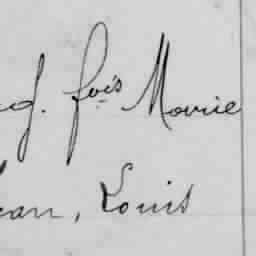 g. fois Marie
ean, Louis